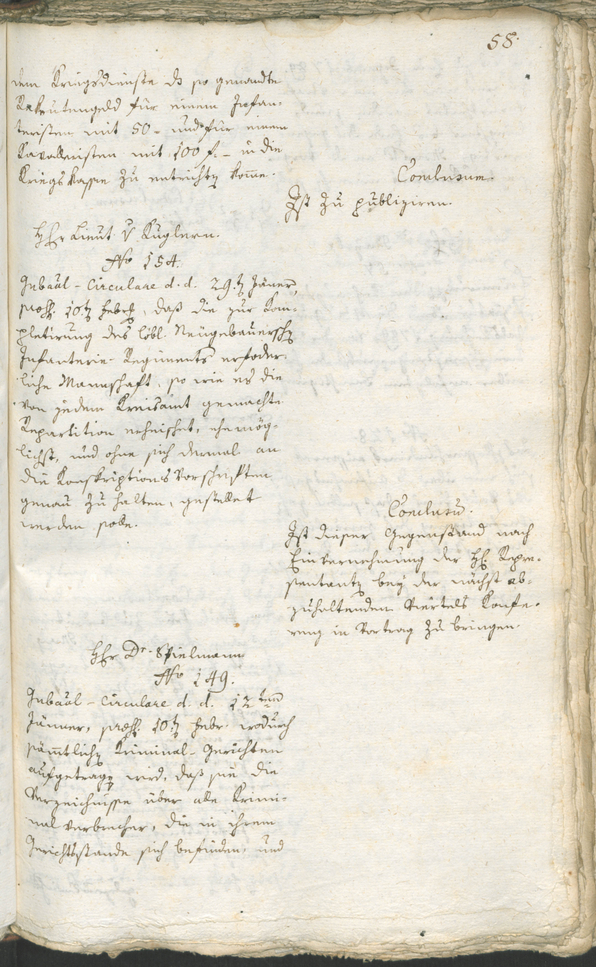 58.
dem Kriegsdienste das so genandte
Rekrutengeld für einem Infan-
teristen mit 50 - und für einem
Kavalleristen mit 100 f - in die
Kriegs Kasse zu entrichten komme.
Conclusum.
Ist zu publiziren.
HEr Lieut. v Kuglern.
No 154.
Gubäal-Circulare d. d. 29.t Jäner
praes. 10.t Febr, daß die zur Kom-
pletirung des löbl. Neugebauerisch
Infanterie-Regiments erfoder-
liche Mannschaft, so wie es die
von jedem Kreisamt gemachte
Repartition erheischet, ehemög-
lichst, und ohne sich dermal an
die Konskriptions Vorschriften
genau zu halten, gestellet
werden solle.
Conclusu.
Ist dieser Gegenstand nach
Einvernehmung der HH. Repre-
sentanten bey der nächst ab-
zuhaltenden Viertels Konfe-
renz in Vortrag zu bringen.
HEr Dr. Spielmann
No 149.
Gubäal-Circulare d. d. 12ten
Jänner, praes. 10.t Febr. wodurch
sämtlichen Kriminal-Gerichten
aufgetragen wird, daß sie die
Verzeichnisse über alle Krimi-
nal verbrecher, die in ihrem
Gerichtsstande sich befinden, und